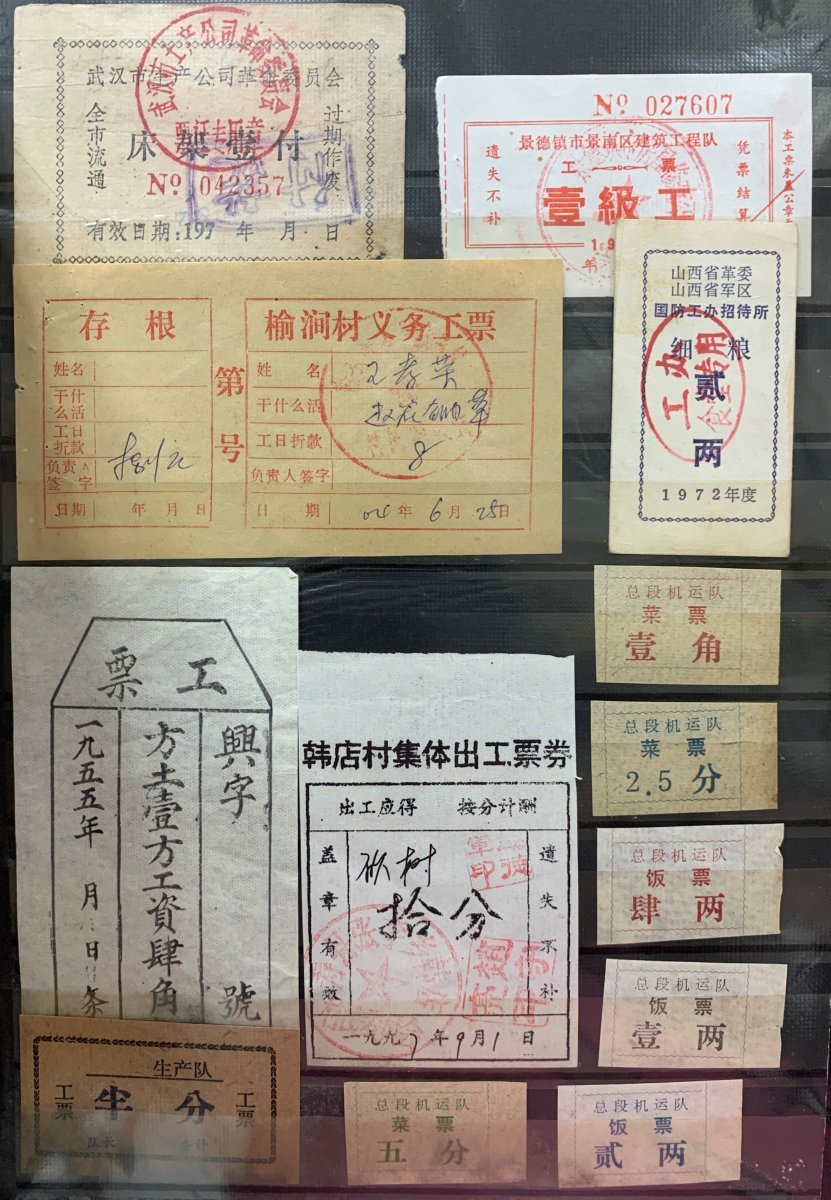 武汉市生产公司革命委员会
全市流通
床架壹付
过期作废
No 042357
有效日期:197 年 月 日
No 027607
景德镇市景南区建筑工程队
遗失不补
工 票
壹級工
凭票结算
本工票未盖公章
存根
姓名
干什么活
工日折款
负责人签字
日期 年 月 日
第 号
榆涧村义务工票
姓名 王孝英
干什么活
工日折款 8
负责人签字
日期 04年6月25日
山西省革委
山西省军区
国防工办招待所
细粮
贰两
工办
食堂专用
1972年度
工票
興字 號
方土壹方工資肆角
一九五五年 月 日 条
韩店村集体出工票券
出工应得 按分计酬
盖章有效
砍树
拾分
遗失不补
一九九7年9月1日
生产队
工票
半分
工票
队长 会计
总段机运队
菜票
壹角
总段机运队
菜票
2.5分
总段机运队
饭票
肆两
总段机运队
饭票
壹两
总段机运队
菜票
五分
总段机运队
饭票
贰两